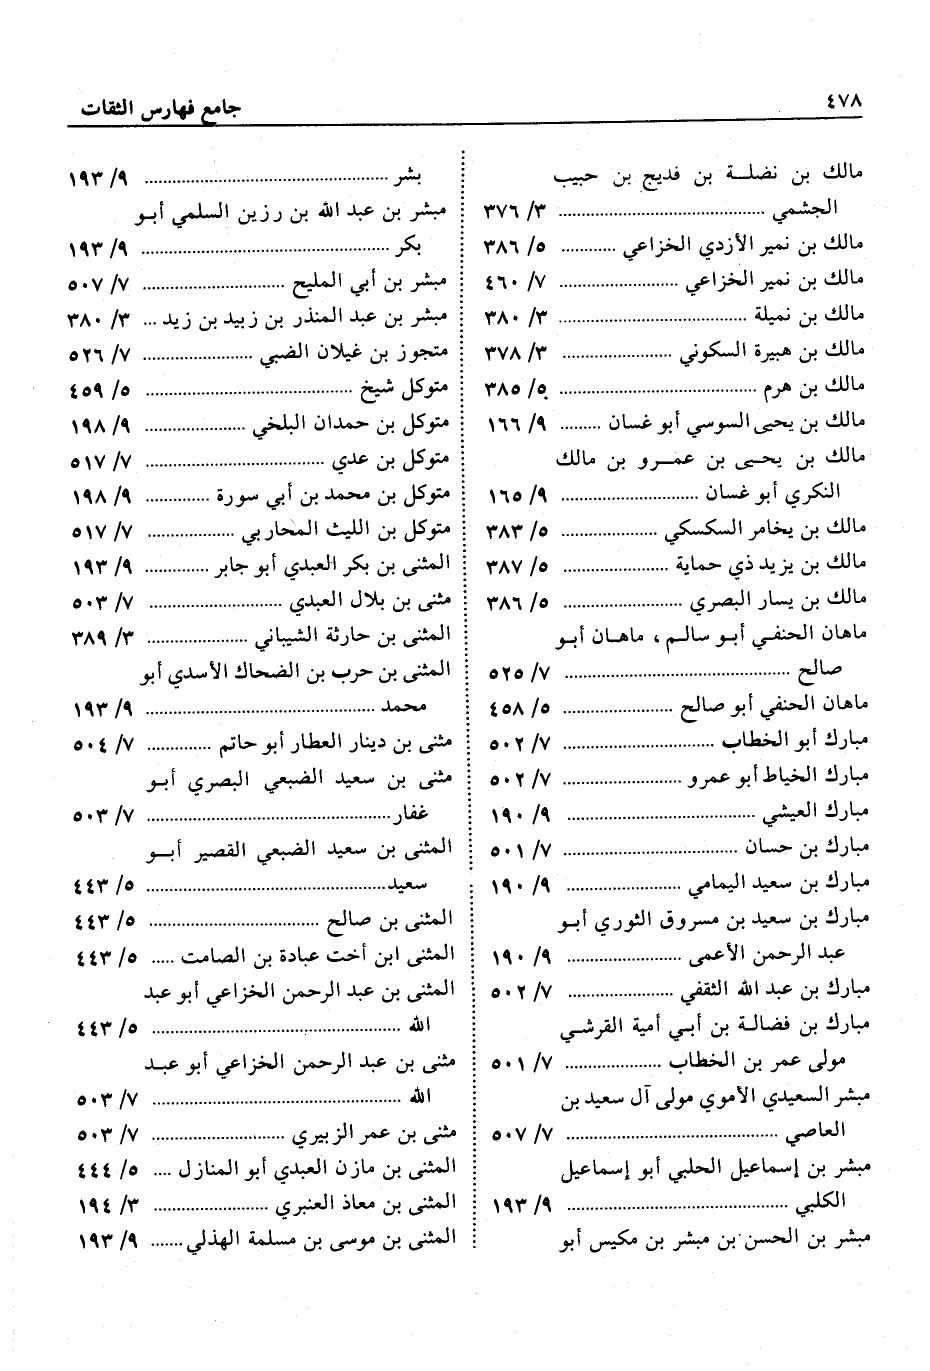 ٤٧٨
جامع فهارس الثقات
مالك بن نضلـة بن فديج بن حبيب
الجشمي ........ ٣/ ٣٧٦
مالك بن نمير الأزدي الخزاعي ........ ٥/ ٣٨٦
مالك بن نمير الخزاعي ........ ٧/ ٤٦٠
مالك بن نميلة ........ ٣/ ٣٨٠
مالك بن هبيرة السكوني ........ ٣/ ٣٧٨
مالك بن هرم ........ ٥/ ٣٨٥
مالك بن يحيى السوسي أبو غسان ........ ٩/ ١٦٦
مالك بن يحيى بن عمرو بن مالك
النكري أبو غسان ........ ٩/ ١٦٥
مالك بن يخامر السكسكي ........ ٥/ ٣٨٣
مالك بن يزيد ذي حماية ........ ٥/ ٣٨٧
مالك بن يسار البصري ........ ٥/ ٣٨٦
ماهان الحنفي أبو سالم ، ماهان أبو
صالح ........ ٧/ ٥٢٥
ماهان الحنفي أبو صالح ........ ٥/ ٤٥٨
مبارك أبو الخطاب ........ ٧/ ٥٠٢
مبارك الخياط أبو عمرو ........ ٧/ ٥٠٢
مبارك العيشي ........ ٩/ ١٩٠
مبارك بن حسان ........ ٧/ ٥٠١
مبارك بن سعيد اليمامي ........ ٩/ ١٩٠
مبارك بن سعيد بن مسروق الثوري أبو
عبد الرحمن الأعمى ........ ٩/ ١٩٠
مبارك بن عبد الله الثقفي ........ ٧/ ٥٠٢
مبارك بن فضالة بن أبي أمية القرشي
مولى عمر بن الخطاب ........ ٧/ ٥٠١
مبشر السعيدي الأموي مولى آل سعيد بن
العاصي ........ ٧/ ٥٠٧
مبشر بن إسماعيل الحلبي أبو إسماعيل
الكلبي ........ ٩/ ١٩٣
مبشر بن الحسن بن مبشر بن مكيس أبو
بشر ........ ٩/ ١٩٣
مبشر بن عبد الله بن رزين السلمي أبو
بكر ........ ٩/ ١٩٣
مبشر بن أبي المليح ........ ٧/ ٥٠٧
مبشر بن عبد المنذر بن زبيد بن زيد ... ٣/ ٣٨٠
متجوز بن غيلان الضبي ........ ٧/ ٥٢٦
متوكل شيخ ........ ٥/ ٤٥٩
متوكل بن حمدان البلخي ........ ٩/ ١٩٨
متوكل بن عدي ........ ٧/ ٥١٧
متوكل بن محمد بن أبي سورة ........ ٩/ ١٩٨
متوكل بن الليث المحاربي ........ ٧/ ٥١٧
المثنى بن بكر العبدي أبو جابر ........ ٩/ ١٩٣
مثنى بن بلال العبدي ........ ٧/ ٥٠٣
المثنى بن حارثة الشيباني ........ ٣/ ٣٨٩
المثنى بن حرب بن الضحاك الأسدي أبو
محمد ........ ٩/ ١٩٣
مثنى بن دينار العطار أبو حاتم ........ ٧/ ٥٠٤
مثنى بن سعيد الضبعي البصري أبو
غفار ........ ٧/ ٥٠٣
المثنى بن سعيد الضبعي القصير أبو
سعيد ........ ٥/ ٤٤٣
المثنى بن صالح ........ ٥/ ٤٤٣
المثنى ابن أخت عبادة بن الصامت ..... ٥/ ٤٤٣
المثنى بن عبد الرحمن الخزاعي أبو عبد
الله ........ ٥/ ٤٤٣
مثنى بن عبد الرحمن الخزاعي أبو عبد
الله ........ ٧/ ٥٠٣
مثنى بن عمر الزبيري ........ ٧/ ٥٠٣
المثنى بن مازن العبدي أبو المنازل .... ٥/ ٤٤٤
المثنى بن معاذ العنبري ........ ٣/ ١٩٤
المثنى بن موسى بن مسلمة الهذلي ....... ٩/ ١٩٣